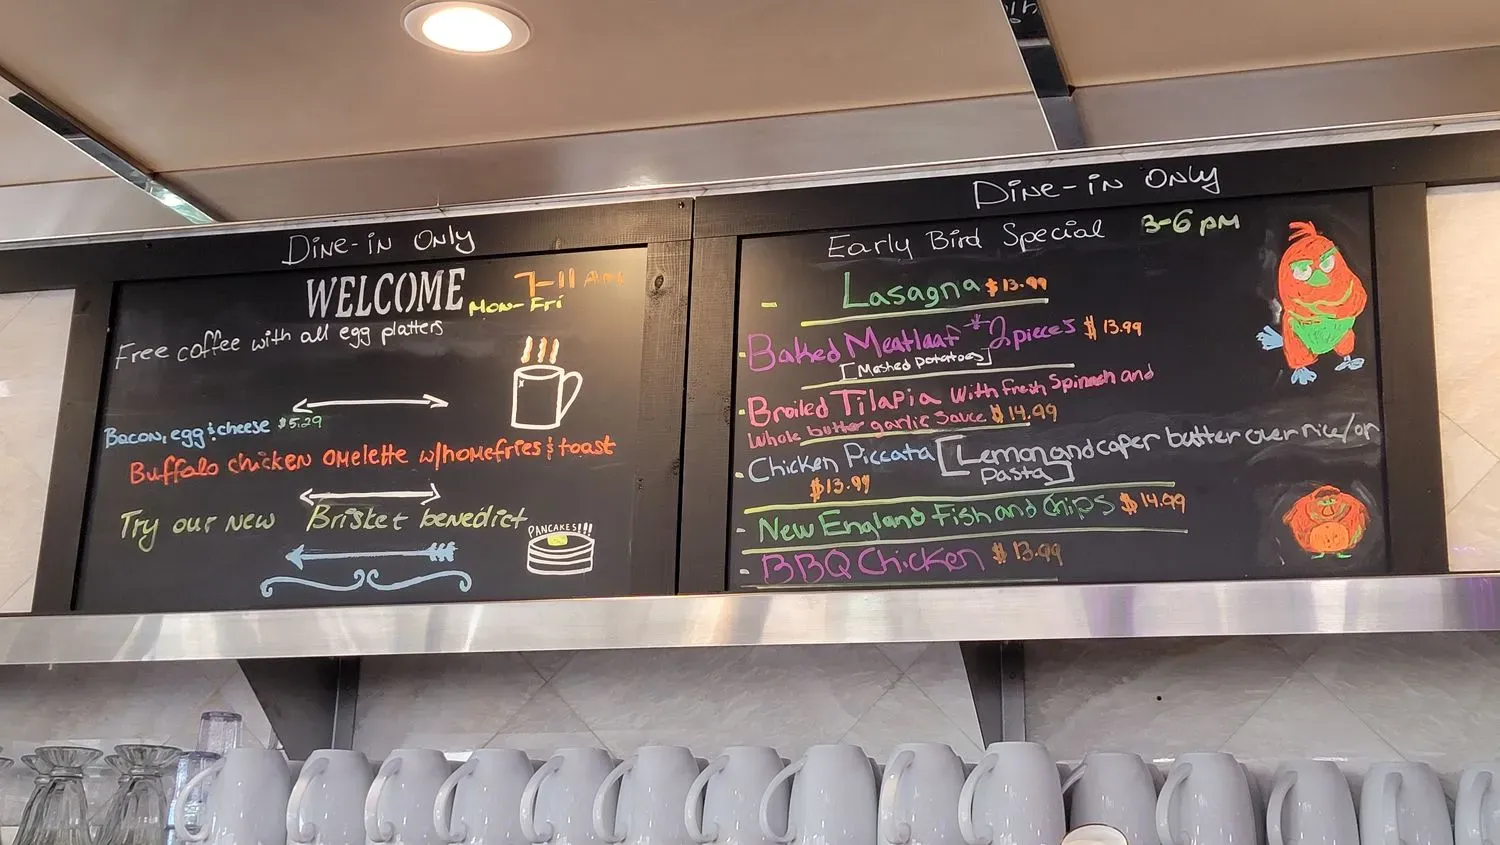 Dine-in Only
WELCOME
7-11 Am
Mon-Fri
Free coffee with all egg platters
Bacon, egg & cheese $5.29
Buffalo chicken omelette w/homefries & toast
Try our new Brisket benedict
PANCAKES!!!
Dine-in Only
Early Bird Special 3-6 pm
- Lasagna $13.99
- Baked Meatloaf * 2 pieces $13.99
[Mashed potatoes]
- Broiled Tilapia with Fresh Spinach and
Whole butter garlic sauce $14.99
- Chicken Piccata [Lemon and caper butter over rice/or
Pasta]
$13.99
- New England Fish and Chips $14.99
- BBQ Chicken $13.99